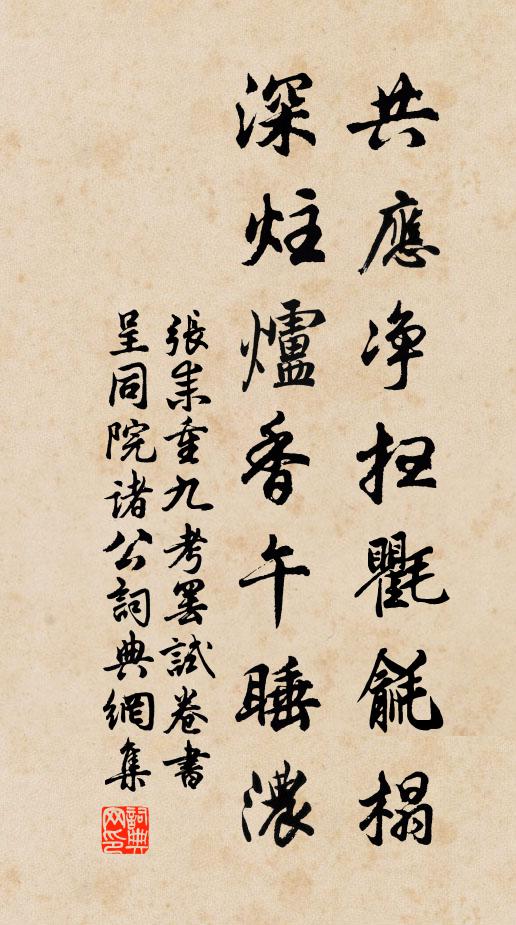 共應净扫氍毹榻
深炷爐香午睡濃
張耒重九考罷試卷書
呈同院諸公詞典網集
詞典网印